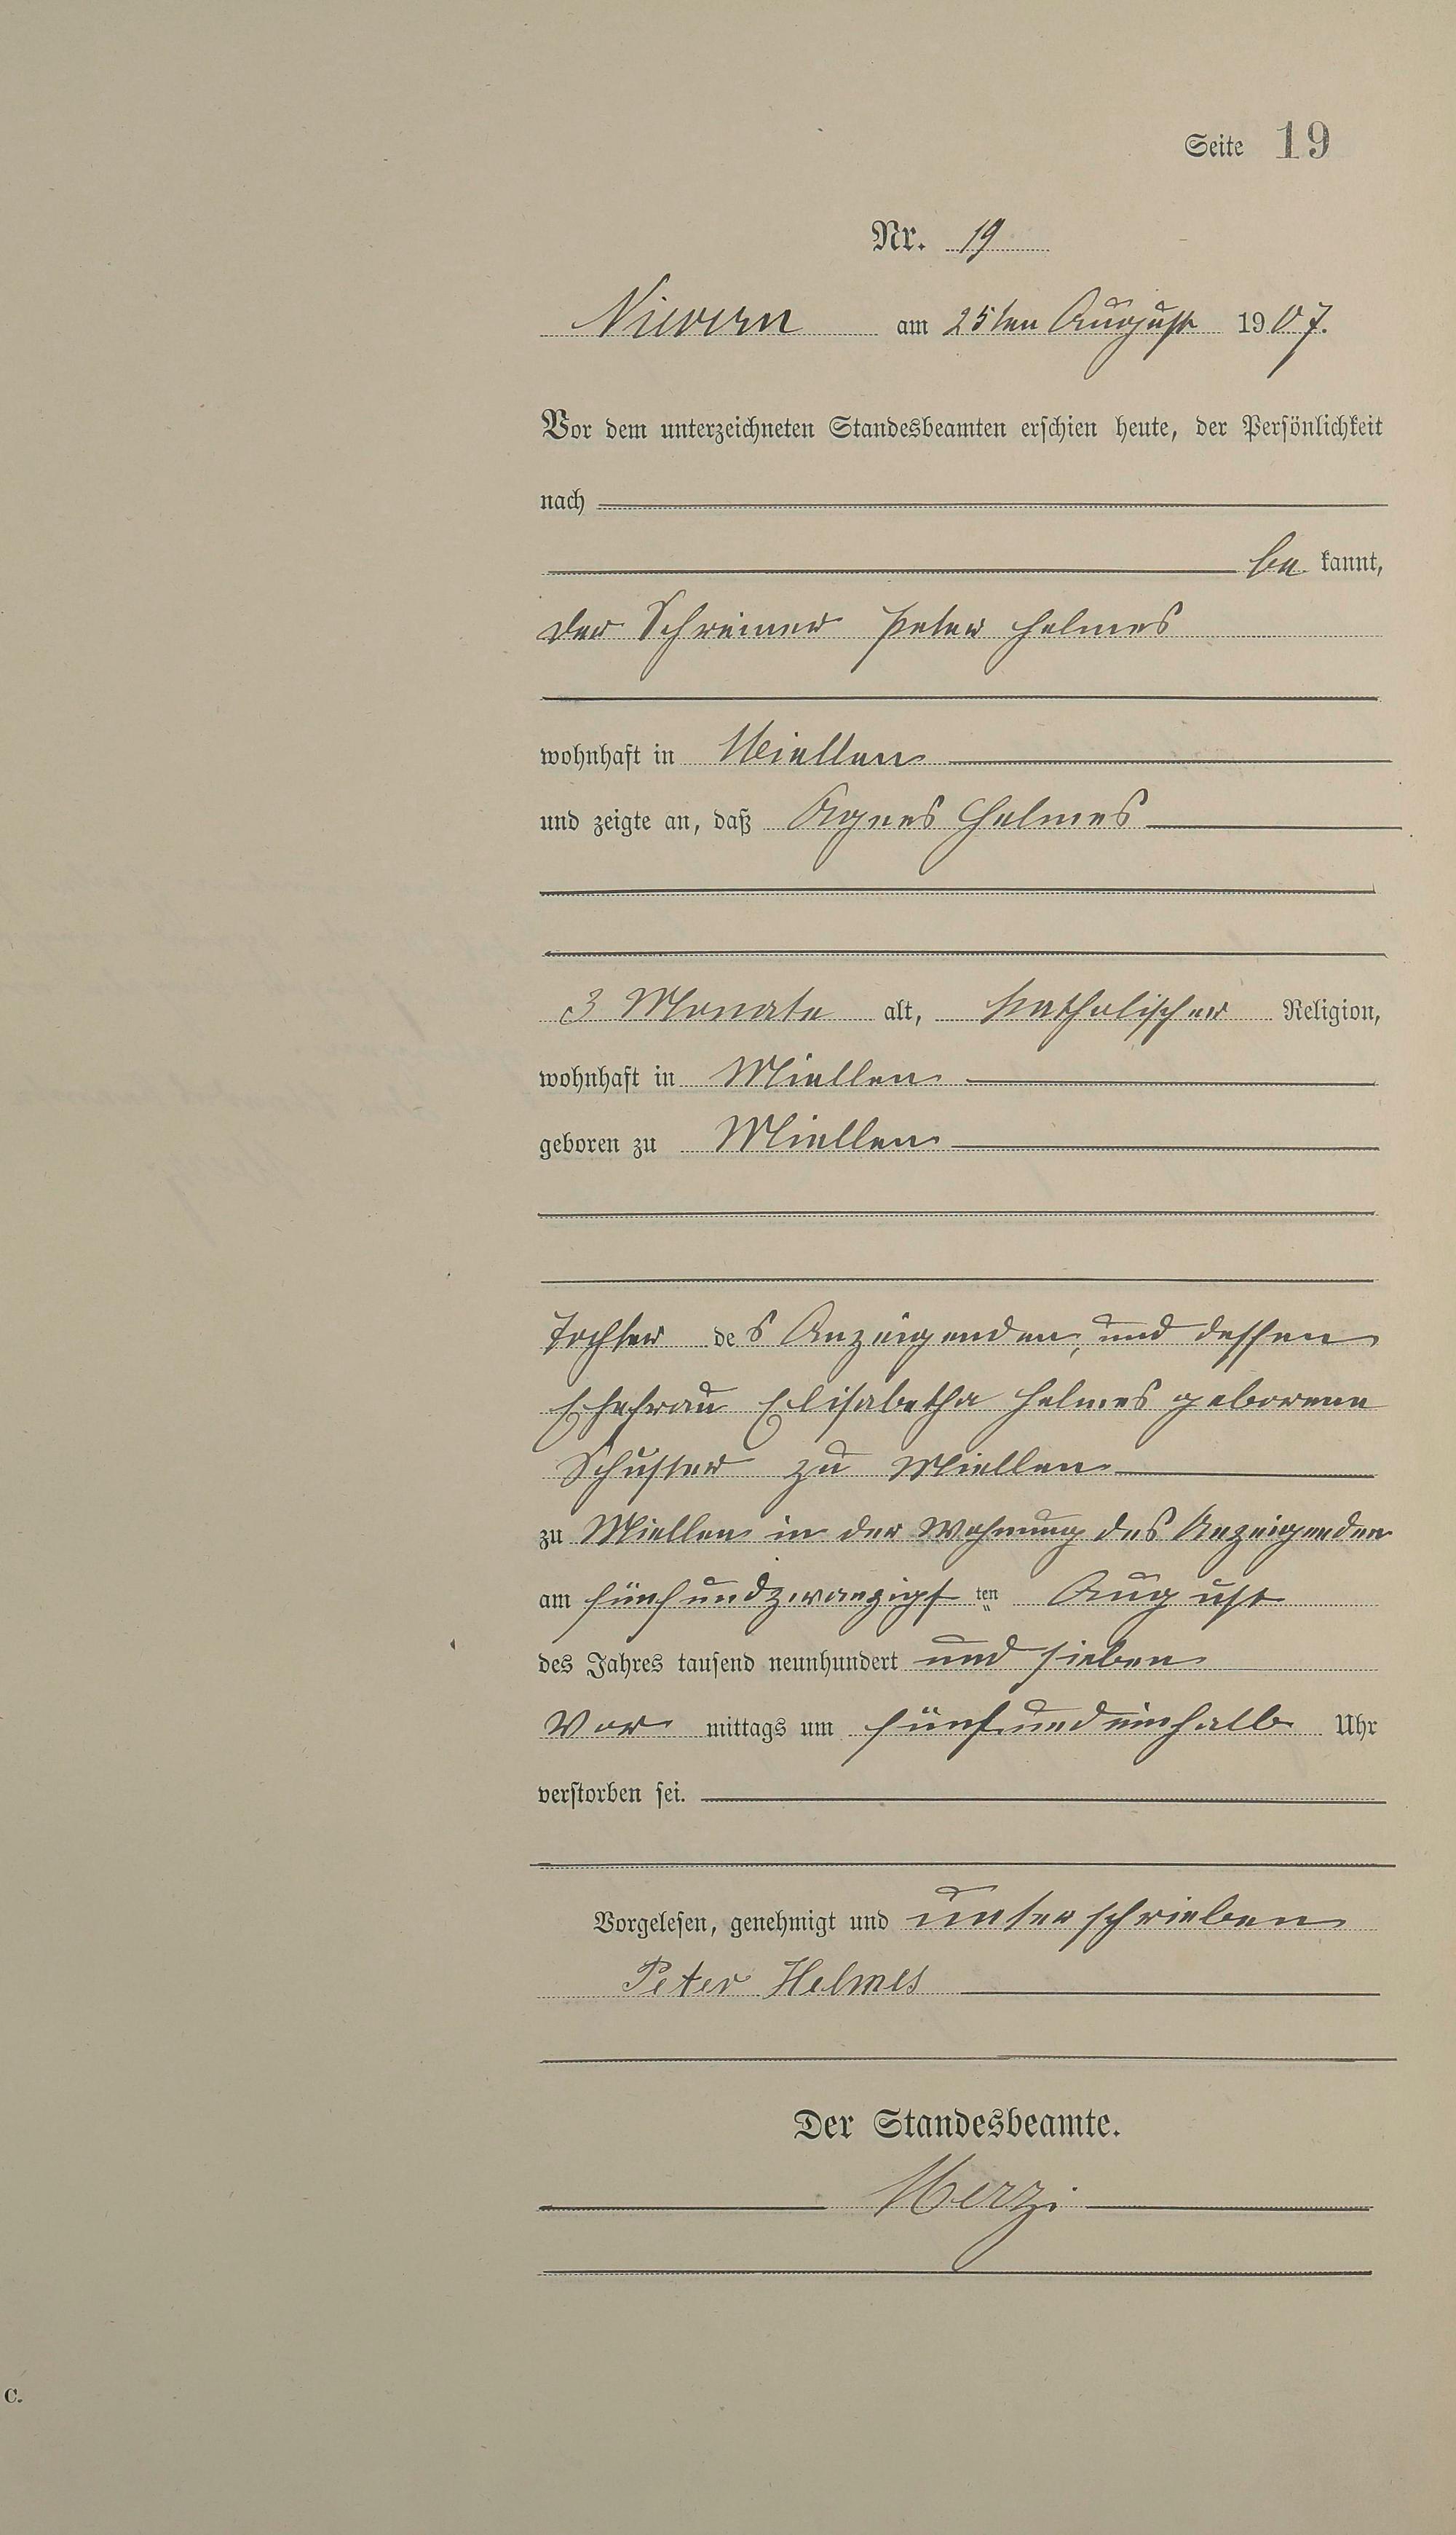 Seite 19
Nr. 19
Nievern am 25ten August 1907.
Vor dem unterzeichneten Standesbeamten erschien heute, der Persönlichkeit
nach
be kannt,
der Schreiner Peter Helmes
wohnhaft in Miellen
und zeigte an, daß Agnes Helmes
3 Monate alt, katholischer Religion,
wohnhaft in Miellen
geboren zu Miellen
Tochter des Anzeigenden, und dessen
Ehefrau Elisabetha Helmes geborene
Schuster zu Miellen
zu Miellen in der Wohnung des Anzeigenden
am fünfundzwanzigsten August
des Jahres tausend neunhundert und sieben
Vor mittags um fünfundeinhalb Uhr
verstorben sei.
Vorgelesen, genehmigt und unterschrieben
Peter Helmes
Der Standesbeamte.
Merzi
C.